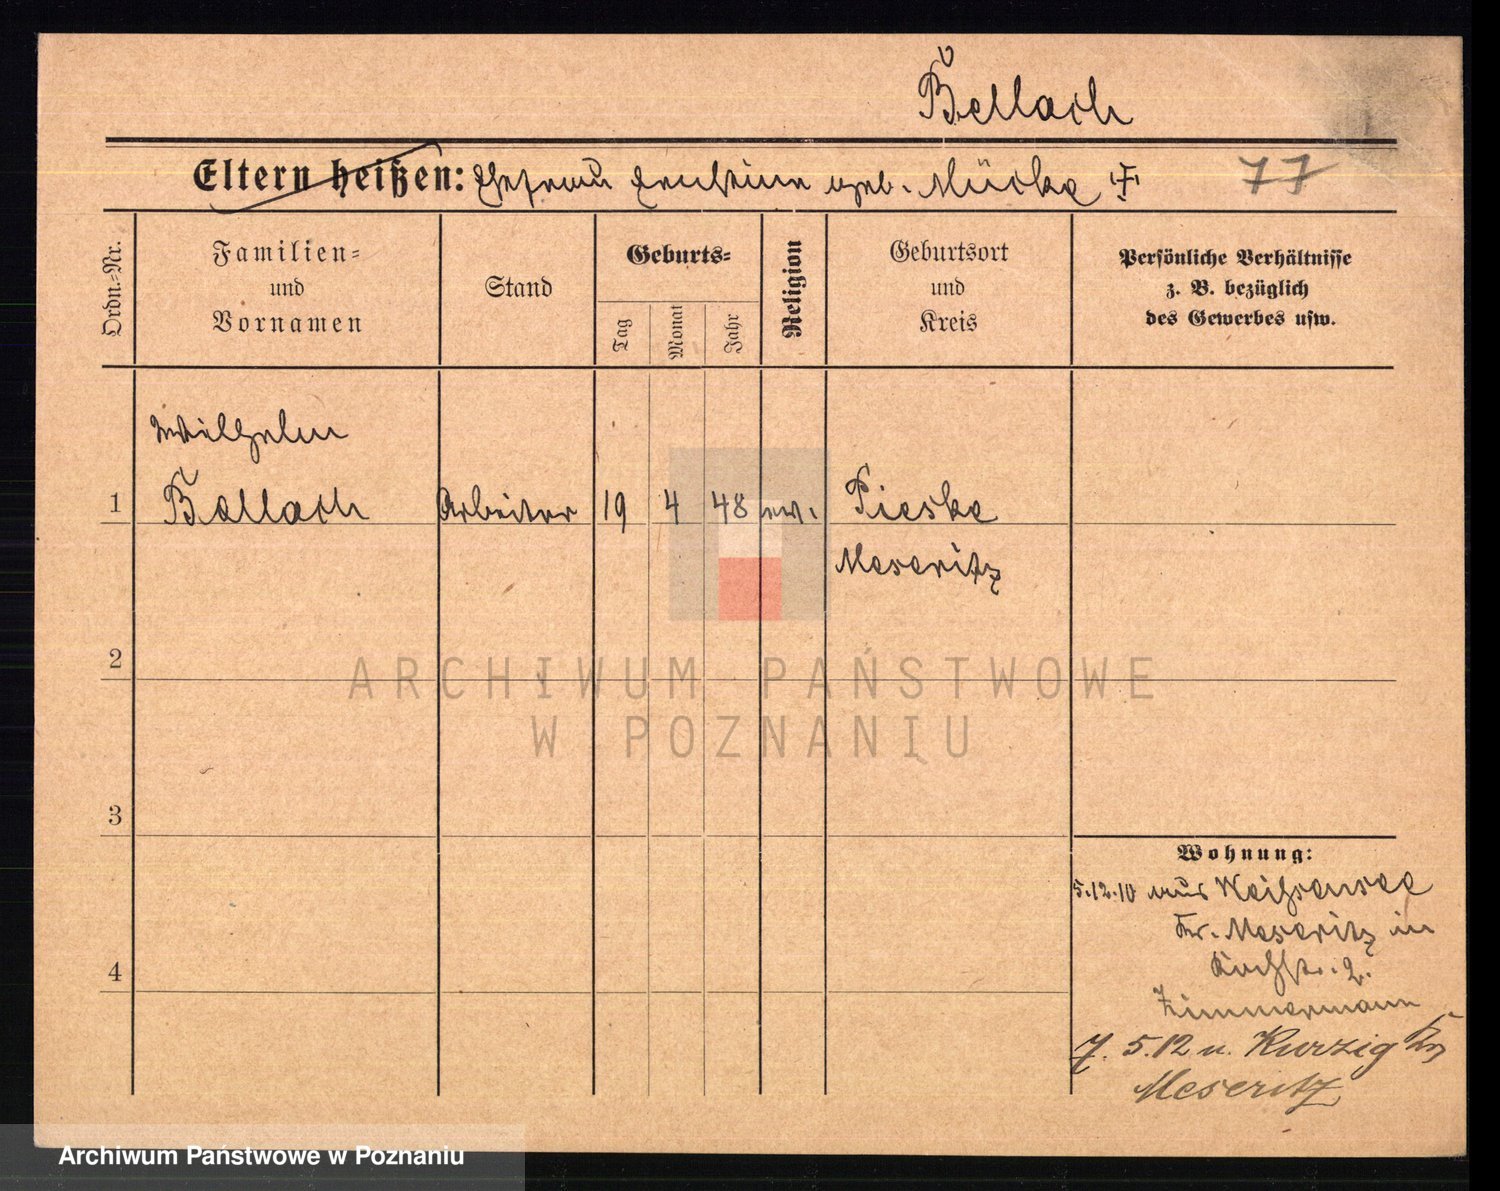 Bellach
Eltern heißen: Ehefrau Ernstine geb. Mücke † 77
Ordn.-Nr.
Familien-
und
Vornamen
Stand
Geburts-
Tag
Monat
Jahr
Religion
Geburtsort
und
Kreis
Persönliche Verhältnisse
z. B. bezüglich
des Gewerbes usw.
Wilhelm
1 Bellach Arbeiter 19 4 48 ev. Pieske
Meseritz
2
ARCHIWUM PAŃSTWOWE
W POZNANIU
3
Wohnung:
5.12.10 aus Weißensee
Kr. Meseritz in
4 Kirchstr. 2.
Zimmermann
7. 5. 12 n. Kurzig Kr
Meseritz
Archiwum Państwowe w Poznaniu